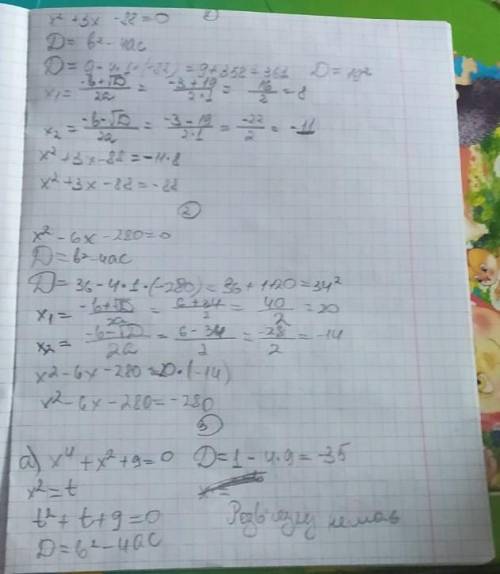 x² + 3x - 88 = 0
D = b² - 4ac
D = 9 - 4·1·(-88) = 9 + 352 = 361 D = 19²
x₁ = (-b+√D)/2a = (-3+19)/(2·1) = 16/2 = 8
x₂ = (-b-√D)/2a = (-3-19)/(2·1) = -22/2 = -11
x² + 3x - 88 = -11·8
x² + 3x - 88 = -88
2
x² - 6x - 280 = 0
D = b² - 4ac
D = 36 - 4·1·(-280) = 36 + 1120 = 34²
x₁ = (-b+√D)/2a = (6+34)/2 = 40/2 = 20
x₂ = (-b-√D)/2a = (6-34)/2 = -28/2 = -14
x² - 6x - 280 = 20·(-14)
x² - 6x - 280 = -280
3
а) x⁴ + x² + 9 = 0 D = 1 - 4·9 = -35
x² = t
t² + t + 9 = 0 Розв'язку немає
D = b² - 4ac